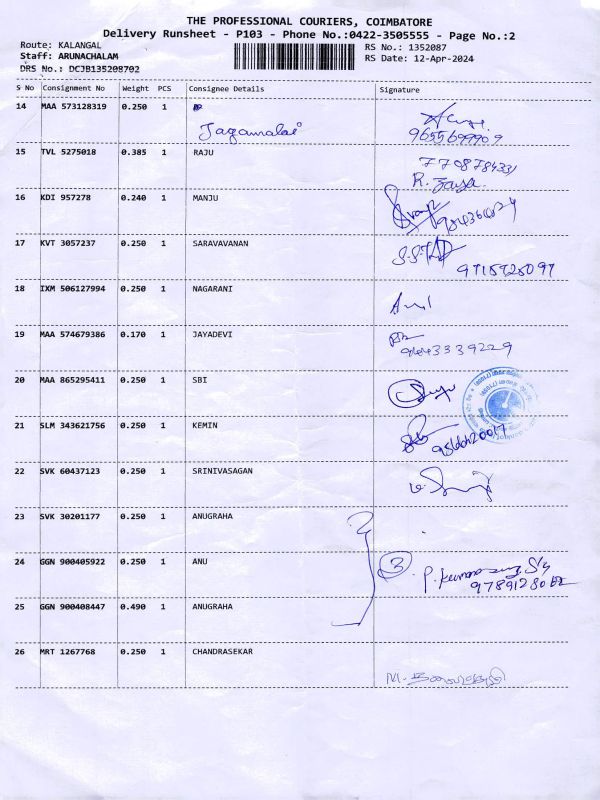 THE PROFESSIONAL COURIERS, COIMBATORE
Delivery Runsheet - P103 - Phone No.:0422-3505555 - Page No.:2
Route: KALANGAL RS No.: 1352087
Staff: ARUNACHALAM RS Date: 12-Apr-2024
DRS No.: DCJB135208702
S No Consignment No Weight PCS Consignee Details Signature
14 MAA 573128319 0.250 1
Jagamalai
9655699909
15 TVL 5275018 0.385 1 RAJU
16 KDI 957278 0.240 1 MANJU
17 KVT 3057237 0.250 1 SARAVAVANAN
18 IXM 506127994 0.250 1 NAGARANI
19 MAA 574679386 0.170 1 JAYADEVI
20 MAA 865295411 0.250 1 SBI
21 SLM 343621756 0.250 1 KEMIN
22 SVK 60437123 0.250 1 SRINIVASAGAN
23 SVK 30201177 0.250 1 ANUGRAHA
24 GGN 900405922 0.250 1 ANU 3
25 GGN 900408447 0.490 1 ANUGRAHA
26 MRT 1267768 0.250 1 CHANDRASEKAR